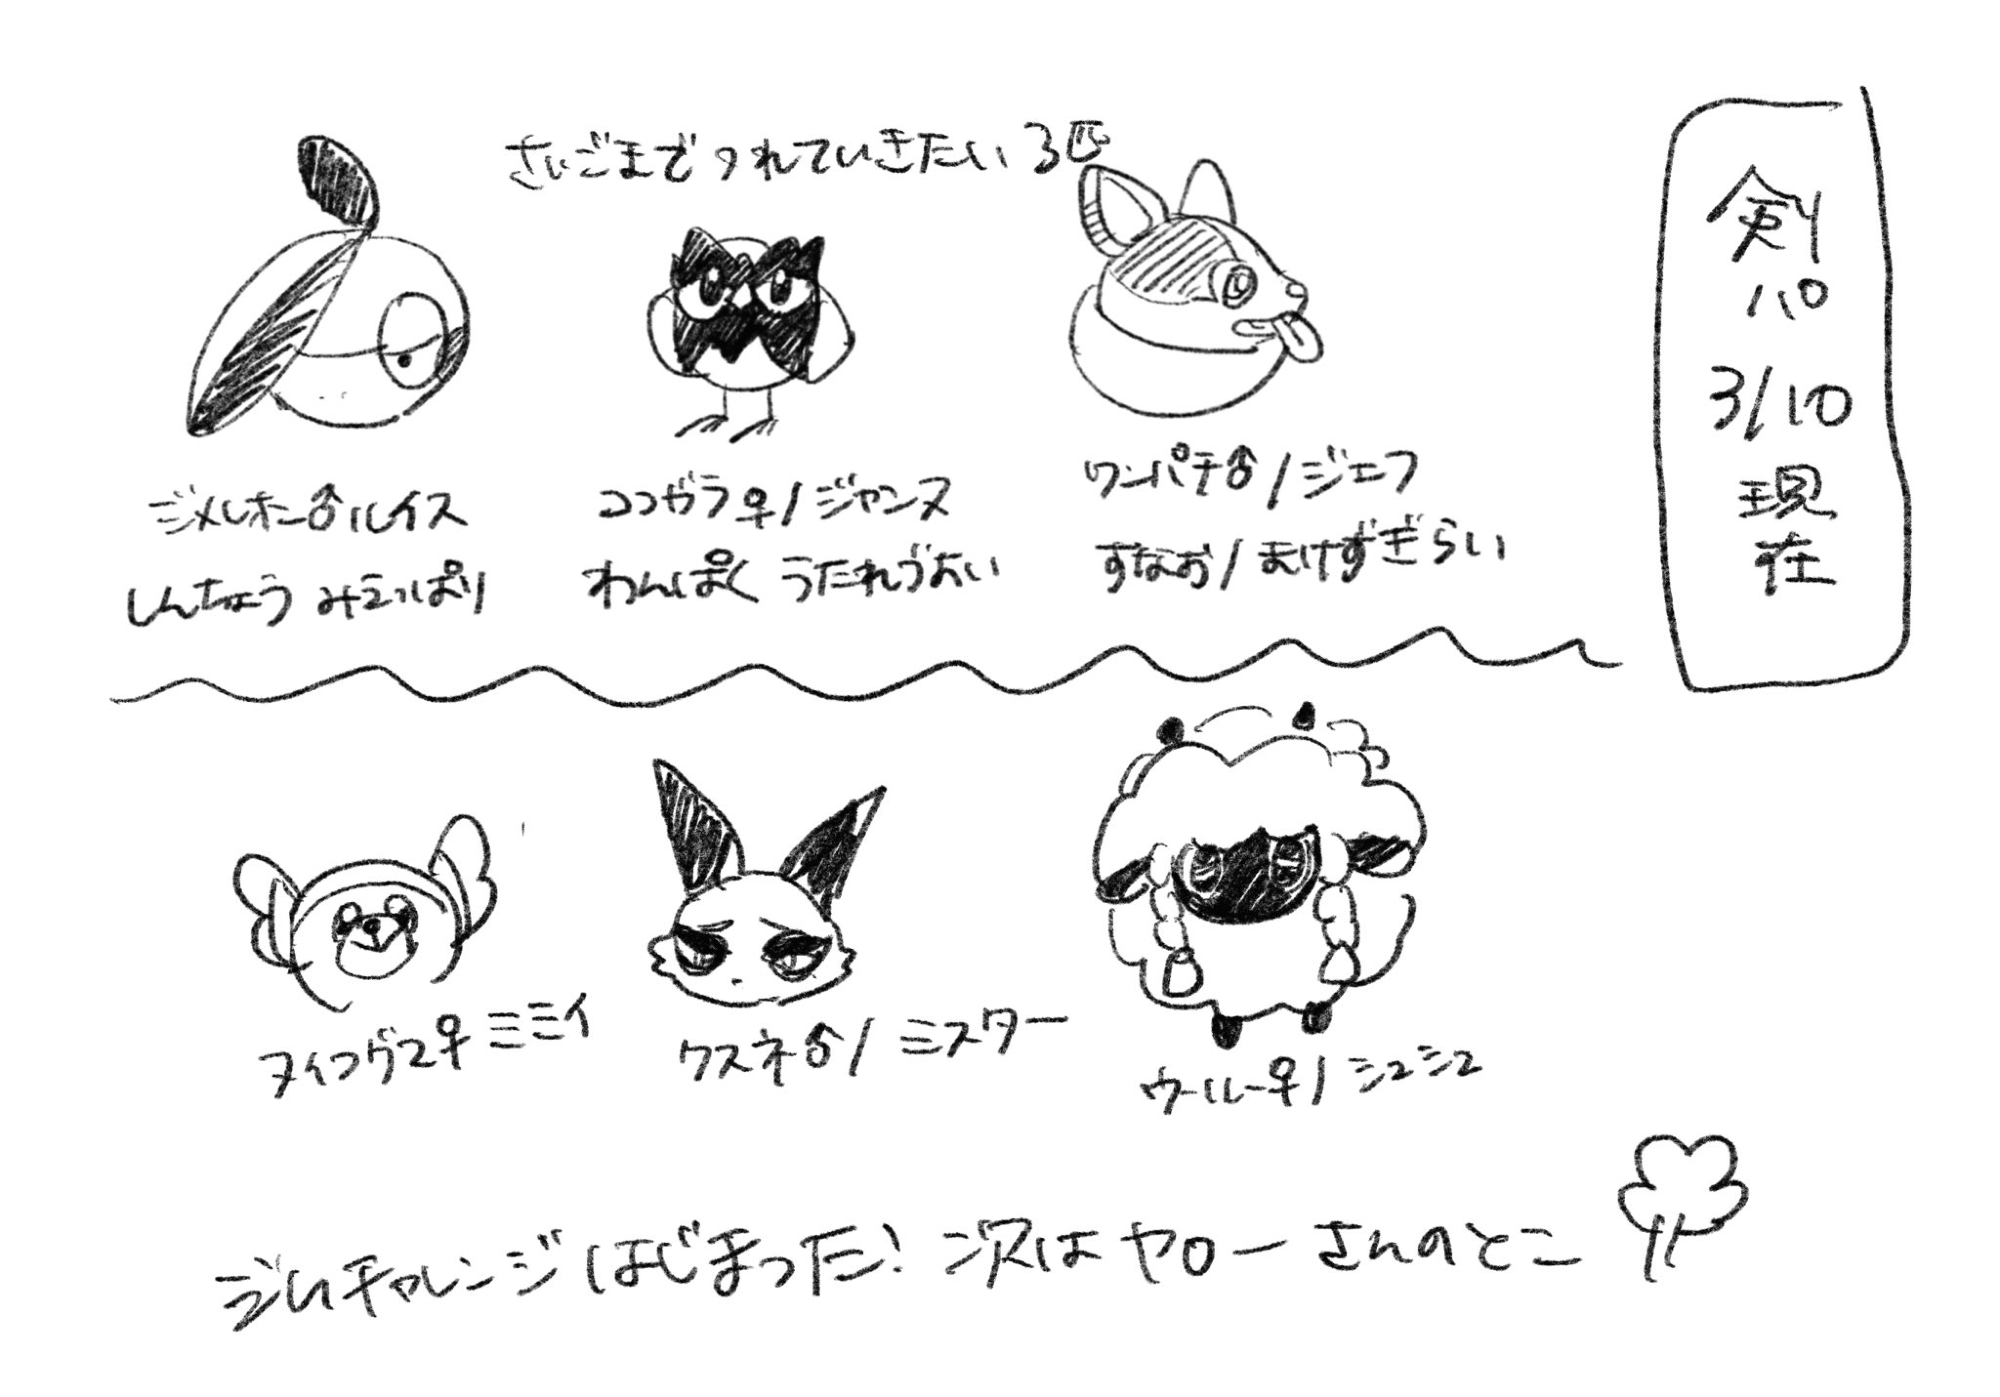 剣パ
3/10
現在
さいごまでつれていきたい3匹
ジメレオン♂ルイス
しんちょう みえっぱり
ココガラ♀/ジャンヌ
わんぱく うたれづよい
ワンパチ♂/ジェフ
すなお/まけずぎらい
ヌイコグマ♀ ミミイ
クスネ♂/ミスター
ウールー♀/シュシュ
ジムチャレンジはじまった! 次はヤローさんのとこ